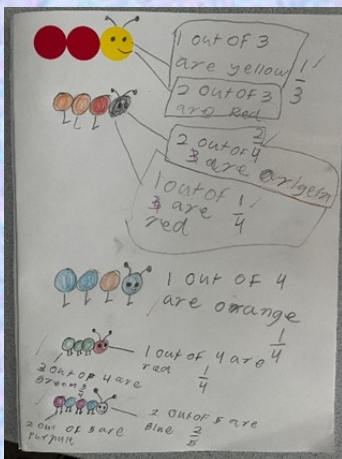 1 out of 3
are yellow 1/3
2 out of 3
are Red
2 out of 2/4
3 are origeln
1 out of
3 are 1/4
red
1 out of 4
are orange
1/4
1 out of 4 are
red 1/4
3 out of 4 are
green 3/4
2 out of 5 are
Blue 2/5
2 out of 5 are
Purpul